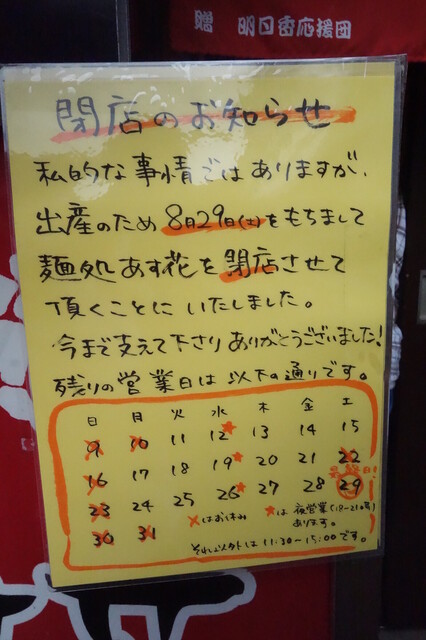 贈 明日香応援団
閉店のお知らせ
私的な事情ではありますが、
出産のため8月29日(土)をもちまして
麺処あす花を閉店させて
頂くことにいたしました。
今まで支えて下さりありがとうございました!
残りの営業日は以下の通りです。
日 月 火 水 木 金 土
9 10 11 12★ 13 14 15
16 17 18 19★ 20 21 22
最終日!
23 24 25 26★ 27 28 29
30 31
×はお休み
★は夜営業(18-21時)
あります。
それ以外は11:30~15:00です。